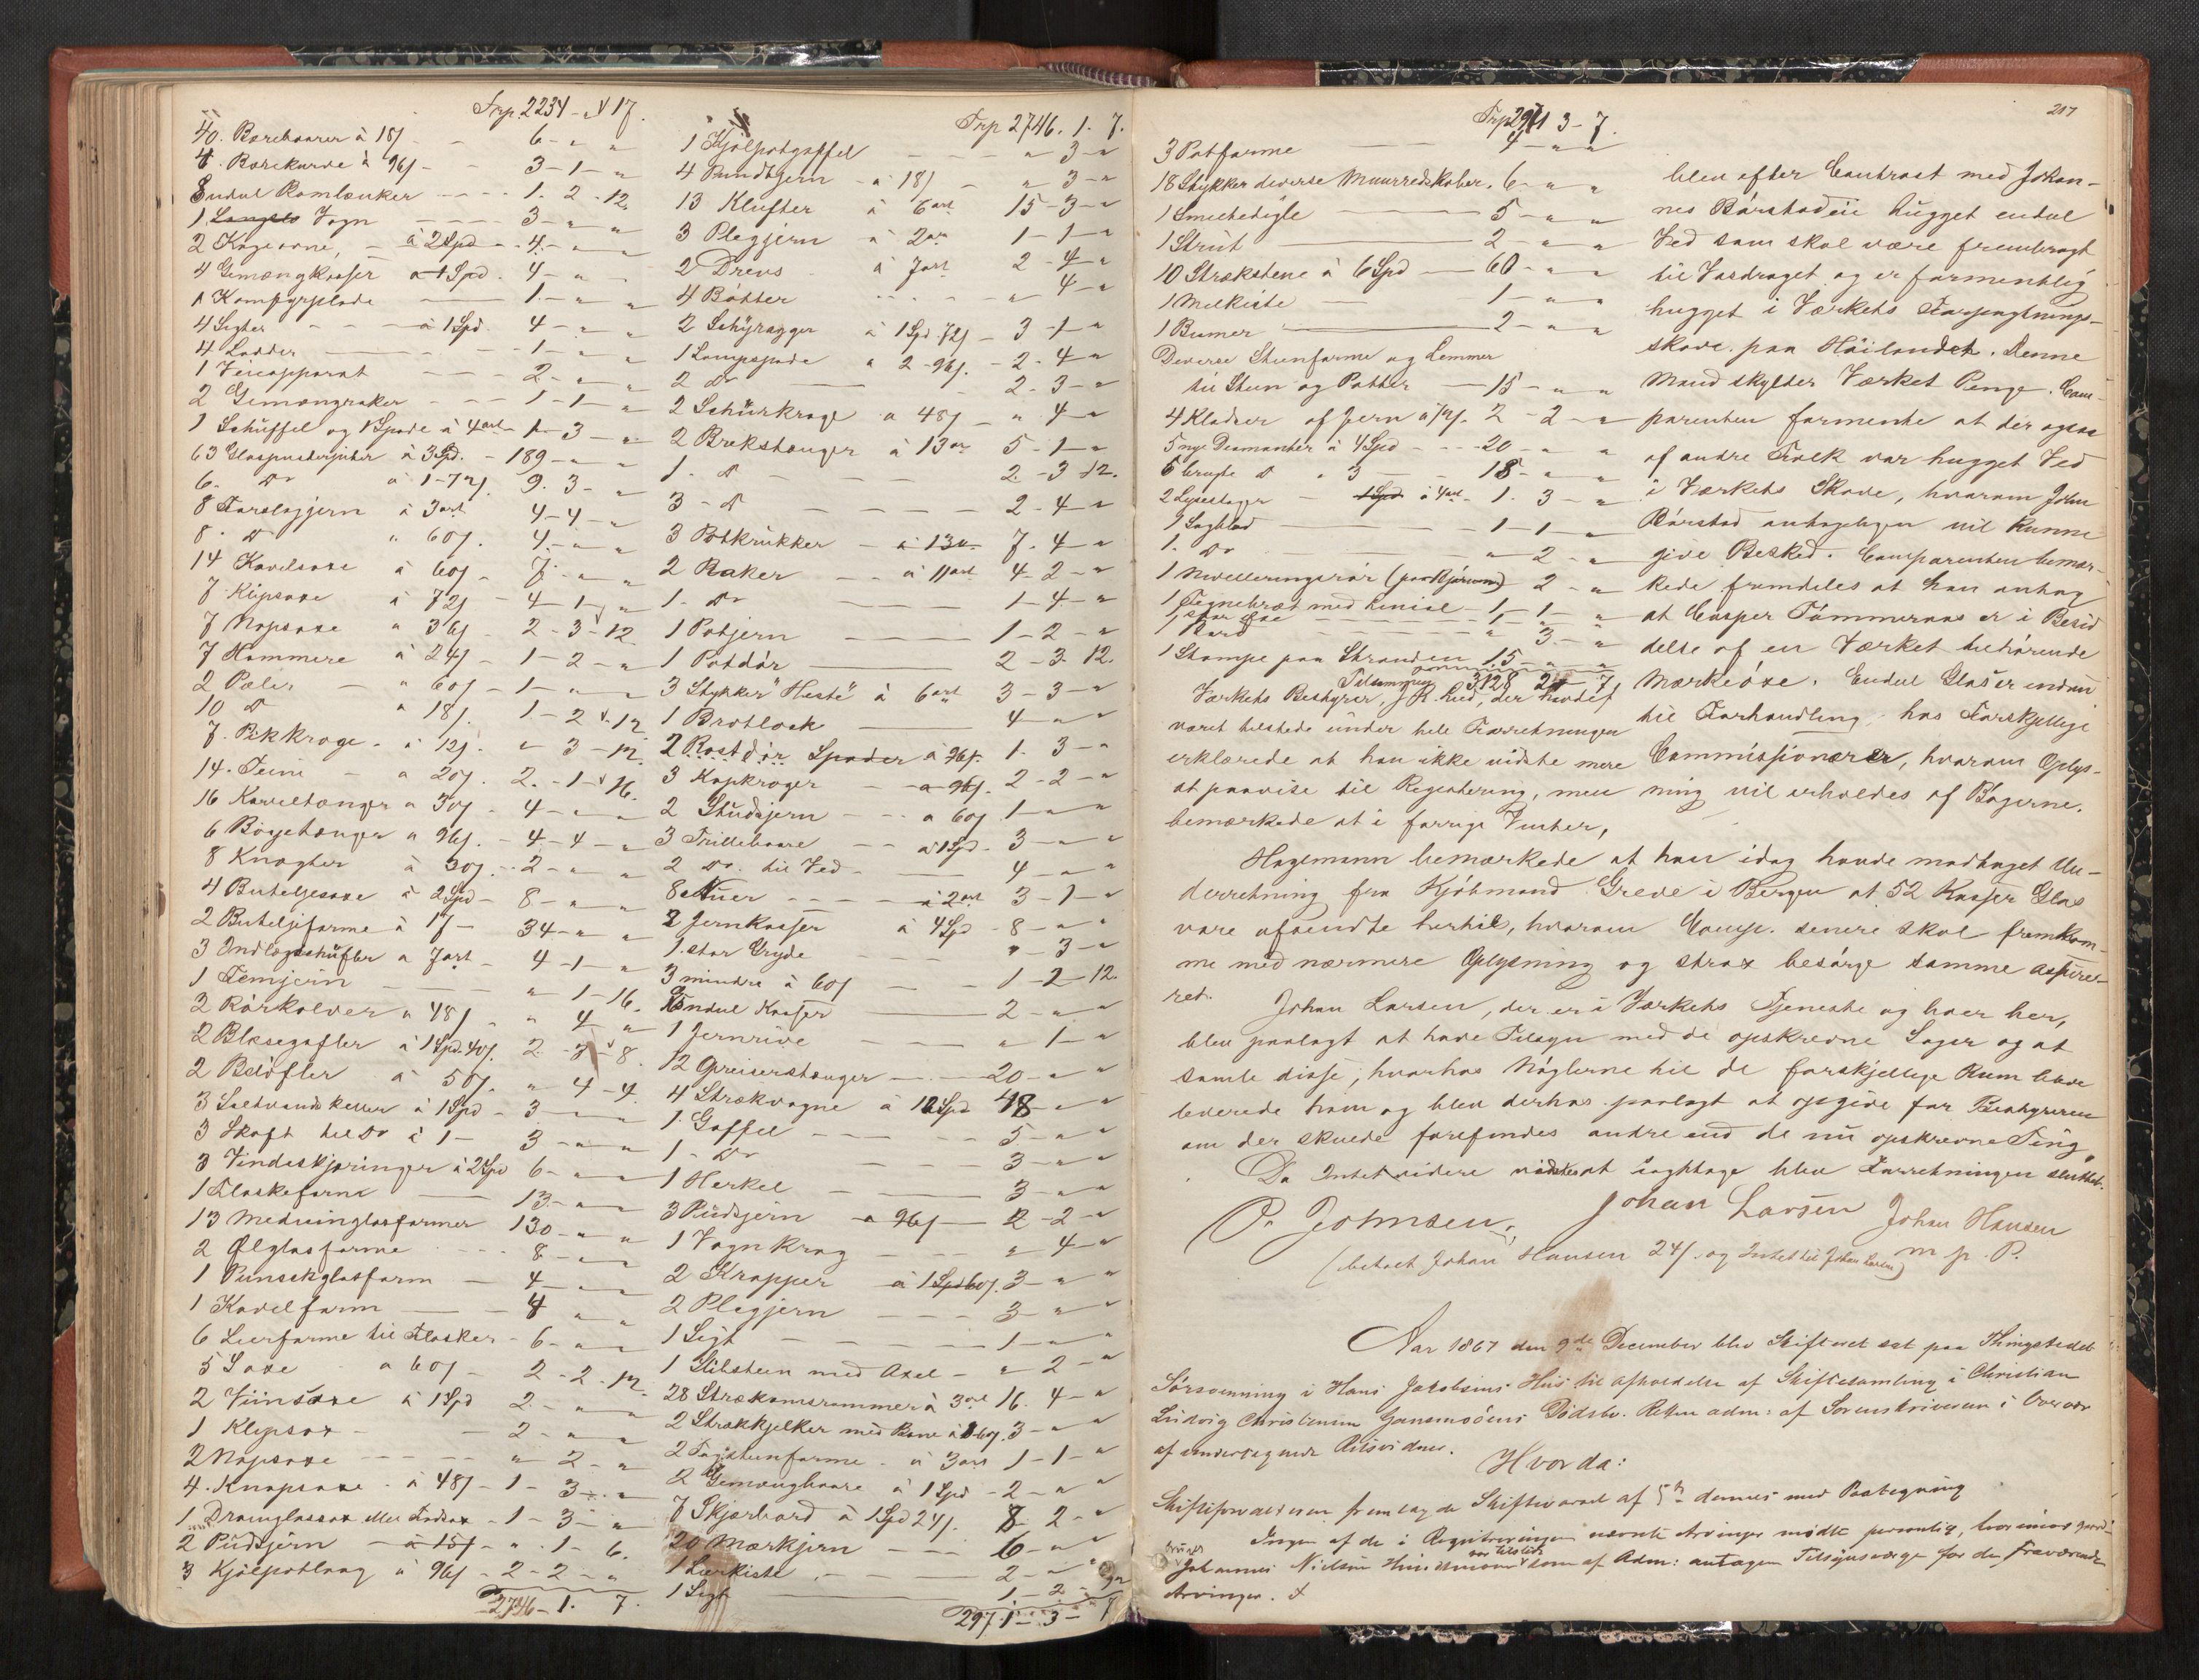 Trp. 2234 - " 17.
40. Børebaarer à 18ʃ - - 6 - " "
4. Børekurve à 96ʃ - - 3 - 1 - "
Endeel Ramlænker - - - 1. 2 - 12.
1 Vogn - - - 3 - " "
2 Kageovne, - à 2 Spd - 4 - " "
4 Gemængkasser à 1 Spd. 4 - " "
1 Komfyrplade 1 - " "
4 Sigter - - à 1 Spd. 4 - " "
4 Ladder 1 - " "
1 Veieapparat - - 2 - " "
2 Gemængraker - - 1 - 1 - "
1 Schuffel og 1 Spade à 4 ort - 1 - 3 - "
63 Glaspusterpiber à 3 Spd. - 189 - " "
6. Do à 1 - 72ʃ. 9. 3 - "
8 à 3 ort 4 - 4 - "
8. Do " 60ʃ. 4 - " "
14 Kavelsaxe à 60ʃ - 7 - " "
7 Klipsaxe à 72ʃ - 4 - 1 - "
7 Napsaxe " 36ʃ - 2 - 3 - 12
7 Hammere à 24ʃ - 1 - 2 - "
2 Pæler - " 60ʃ - 1 - " "
10 Do " 18ʃ. 1 - 2 - 12
7. Pikkroge - à 12ʃ. " 3 - 12.
14. Teine - à 20ʃ. 2 - 1 - 16.
16 Kaveltænger à 30ʃ - 4 - " "
6 Bøyetænger à 96ʃ. - 4 - 4 - "
8 Knægter à 30ʃ. - 2 - " "
4 Buteljesaxe à 2 Spd - 8 - " "
2 Buteljeforme à 17 - 34 - " "
3 à 7 ort - 4 - 1 - "
1 Femjern " 1 - 16.
2 Rørkolver " 48ʃ. " 4 "
2 Blæsegafler à 1 Spd. 40ʃ. 2 - 3 - 8.
2 à 50ʃ. " 4 - 4.
3 Saltvands keller à 1 Spd - 3 - " "
3 Skaft til Do à 1 - 3 - " "
3 Vindeskjæringer à 2 Spd 6 - " "
1 Flaskeform 13 - " "
13 Medicinglasformer 130 - " "
2 Ølglasforme 8 - " "
1 Punschglasform - 4 - " "
1 Kavelform 4 " "
6 Leerforme til Flasker - 6 - " "
5 Saxe à 60ʃ - 2 - 2 - 12.
2 Viinsaxe à 1 Spd 2 - " "
1 Klipsax - - 2 - " "
2 Napsaxe - - " 2 - "
4. Knapsaxe - à 48ʃ - 1 - 3 - "
1 eller - 1 - 3 - "
2 Pudsjern à 15ʃ - " 1 - 6.
3 Kjølpotlaag à 96ʃ - 2 - 2 - "
2746 - 1. 7.
Trp 2746. 1. 7.
1 Kjølpotgaffel - - " 3 - "
4 Rundtjern - à 18ʃ - " 3 - "
13 Klufter à 6 ort 15 - 3 - "
3 Plegjern à 2 ort 1 - 1 - "
2 Drevs à 7 ort 2 - 4 - "
4 Bøtter - - - " 4 - "
2 Schyragger à 1 Spd 72ʃ - 3 - 1 - "
1 Lampespade à 2 - 96ʃ. - 2 - 4 - "
2 Do - - 2 - 3 - "
2 Schürkrage à 48ʃ - " 4 - "
2 Brekstænger à 13 ort 5 - 1 - "
1. Do - - - 2 - 3 12.
3 - Do - - - 2 - 4 - "
3 Potkrukker - à 13 o. 7 - 4 - "
2 Raker - à 11 ort 4 - 2 - "
1. Do 1 - 4 - "
1 Potjern 1 - 2 - "
1 Potdør 2 - 3 12.
3 Stykker "Heste" à 6 ort 3 - 3 - "
1 Brotlock 4 - " "
2 Rostdør Spader à 96ʃ. 1. 3 - "
3 Kapkroger - à 96ʃ. 2 - 2 - "
2 Studsjern - - à 60ʃ. 1 - " "
3 Trillebaare - à 1 Spd - 3 - " "
2 Do. til Ved - - 4 - " "
8 Stuer - - - à 2 ort 3 - 1 - "
2 Jernkasser à 4 Spd - 8 - " "
1. stor Gryde " - 3 - "
3 mindre à 60ʃ - - 1 - 2 - 12.
Endeel Kasser 2 - " "
1 Jernrive - - " 1 - "
12 Opreiserstænger - - 20 - " "
4 Strækvogne à 12 Spd 48 - " "
1. Gaffel - - - 5 - " "
1 - Do - - 3 - " "
1 Herkel - - 3 - " "
3 Pudsjern à 96ʃ - 2 - 2 - "
1 Vognkrog - - " 4 - "
2 Krapper à 1 Spd 60ʃ. 3 - " "
2 Plegjern - - - 3 - " "
1 Sigt - - - 1 - " "
1 Slibsteen med Axel - " 2 - "
28 Strækamrammer à 3 ort 16. 4 - "
2 Strækkjelker med Bane à 1 - 60ʃ. 3 - "
2 - à 3 ort 1 - 1 - "
2 Gemængbaare à 1 Spd - 2 - " "
7 Skjærbord à 1 Spd 24ʃ. 8 - 2 - "
20 Mærkjern - - 6 - " "
1 Leerkiste - - 2 - " "
1 Sigt 1 - 2 -
2971 - 3 - 7
Trp 2971 3 - 7.
3 Potforme 4 - " "
18 Stykker diverse Muurredskaber. 6 - " "
1 Smeltedigle 5 - " "
1 Strut 2 - " "
10 Strækstene à 6 Spd 60 - " "
1 Melkiste 1 - " "
1 Bumer 2 - " "
Diverse Steenforme og Lemmer
til Steen og Potter 15 - " "
4 Kladser af Jern à 2 - 2 - "
5 nye Diamanter à 4 Spd - - 20 - " "
6 brugte Do " 3 18 - " "
2 Lysestager - à 4 ort - 1. 3 - "
1 Sagblad - 1 - 1 - "
1. Do - " 2 - "
1 Nivelleringsrør 2 - "
1 Tegnebræt med Lineal - 1 - 1 - "
1 Bord - " 3 - "
1 Stampe paa Stranden 15 - " "
Tilsammen 3128 2 - 7
Værkets Bestyrer, J. R. Lied, der havde
været tilstede under hele Forretningen
erklærede at han ikke vidste mere
at paavise til Registrering, men
bemærkede at i forrige Vinter,
217
blev efter Contract med Johan-
nes Børstadeie hugget endeel
Ved som skal være frembragt
til Vasdraget og er formentlig
hugget i Værkets Forpagtnings-
skove paa Høilandet. Denne
Mand skylder Værket Penge. Com-
parenten formente at der ogsaa
af andre Folk var hugget Ved
i Værkets Skove, hvorom John
Børstad antageligen vil kunne
give Besked. Comparenten bemær-
kede fremdeles at han antog
at Casper Tømmeraas er i Besid
delse af en Værket tilhørende
Mærkeøxe. Endeel Glas er indsen
til Forhandling hos Forskjellige
Commissionærer, hvorom Oplys-
ning vil erholdes af Bøgerne.
Hagemann bemærkede at han idag havde modtaget Un-
derretning fra Kjøbmand Greve i Bergen at 52 Kasser Glas
vare afsendte hertil, hvorom Comp. senere skal fremkom-
me med nærmere Oplysning og strax besørge samme assure-
ret.
Johan Larsen, der er i Værkets Tjeneste og boer her,
blev paalagt at have Tilsyn med de opskrevne Sager og at
samle disse, hvorhos Nøglerne til de forskjellige Rum bleve
leverede ham og blev derhos paalagt at opgive for Bestyreren
om der skulde forefindes andre end de nu opskrevne Ting.
Da Intet videre vidstes at iagttage blev Forretningen sluttet.
P. Johnsen, Johan Larsen Johan Hansen
m. p. P.
(betalt Johan Hansen 24ʃ. og Intet til Johan Larsen)
Aar 1867 den 9de December blev Skifteret sat paa Thingstedet
Sørsvenning i Hans Jakobsens Huus til afholdelse af Skiftesamling i Christian
Ludvig Christiansen Gansmoens Dødsbo. Retten adm: af Sorenskriveren i Overvær
af undertegnede Retsvidner.
Hvor da:
Skifteforvalteren fremlagde Skiftevarsel af 5te dennes med Paategning
Ingen af de i Registreringen nævnte Arvinger mødte personlig, hvorimod
Johannes Nielsen var tilstede som af Adm: antagen Tilsynsværge for de fraværende
Arvinger.